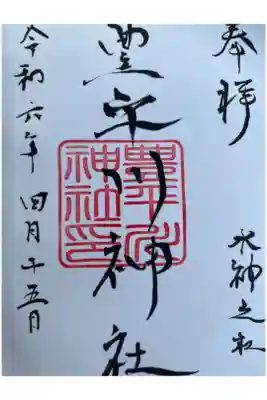 奉拝
水神之
豊平川神社
豊平川
神社印
令和六年 四月十五日